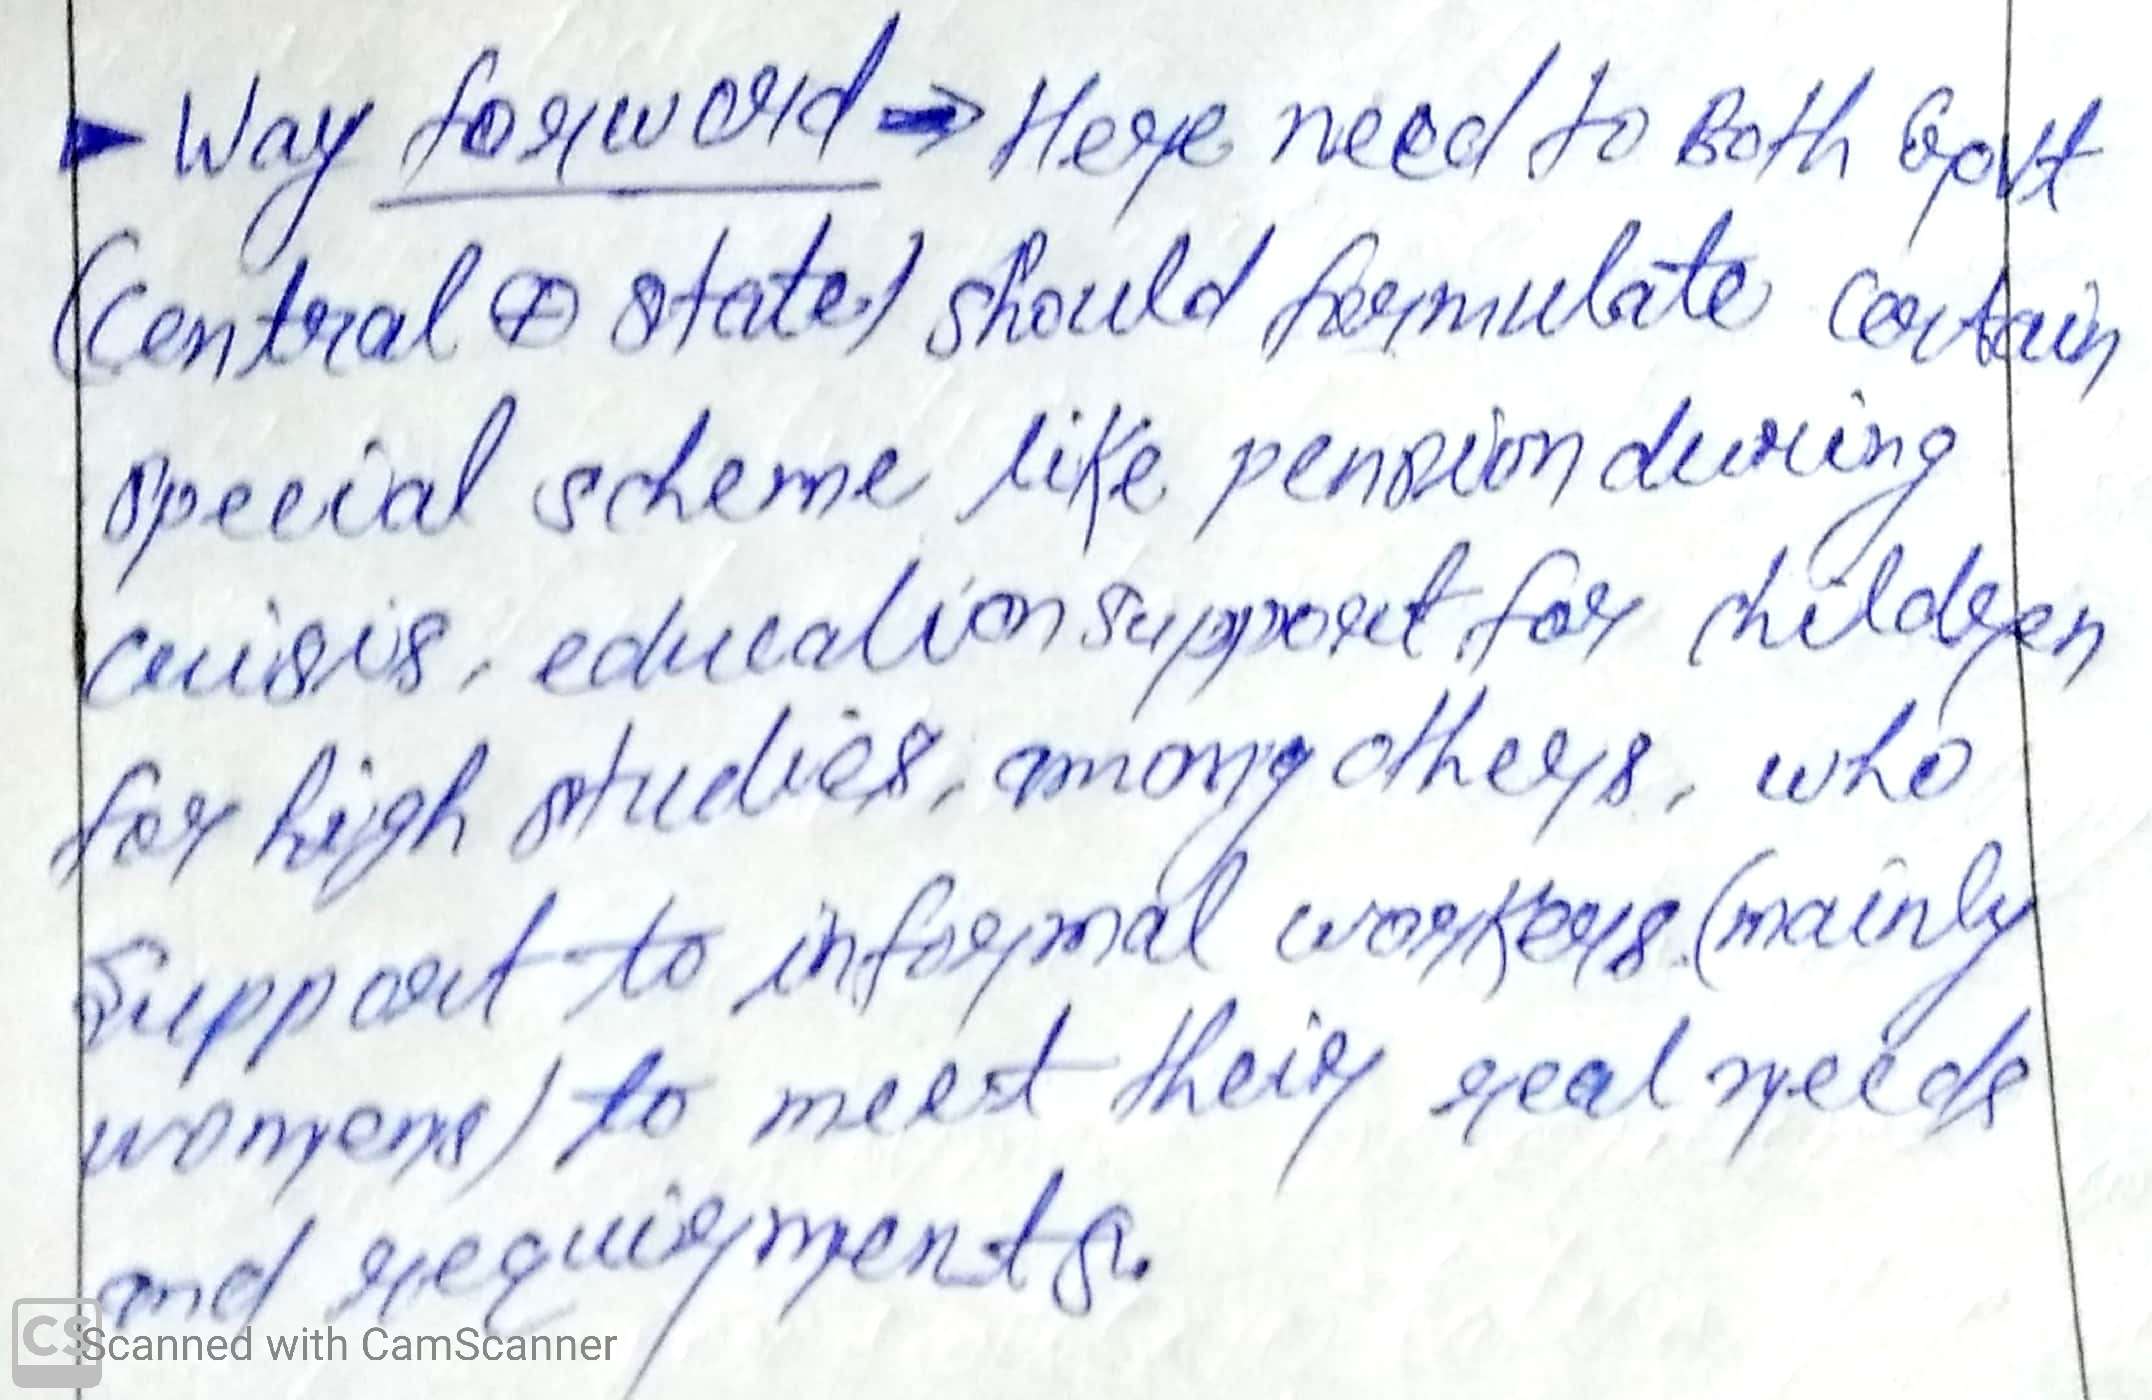 ▶ Way forword → Here need to Both Govt
(Central & state) should formulate certain
special scheme like pension during
crisis, education support for children
for high studies, among others, who
support to informal workers (mainly
womens) to meet their real needs
and requirments.
CS Scanned with CamScanner